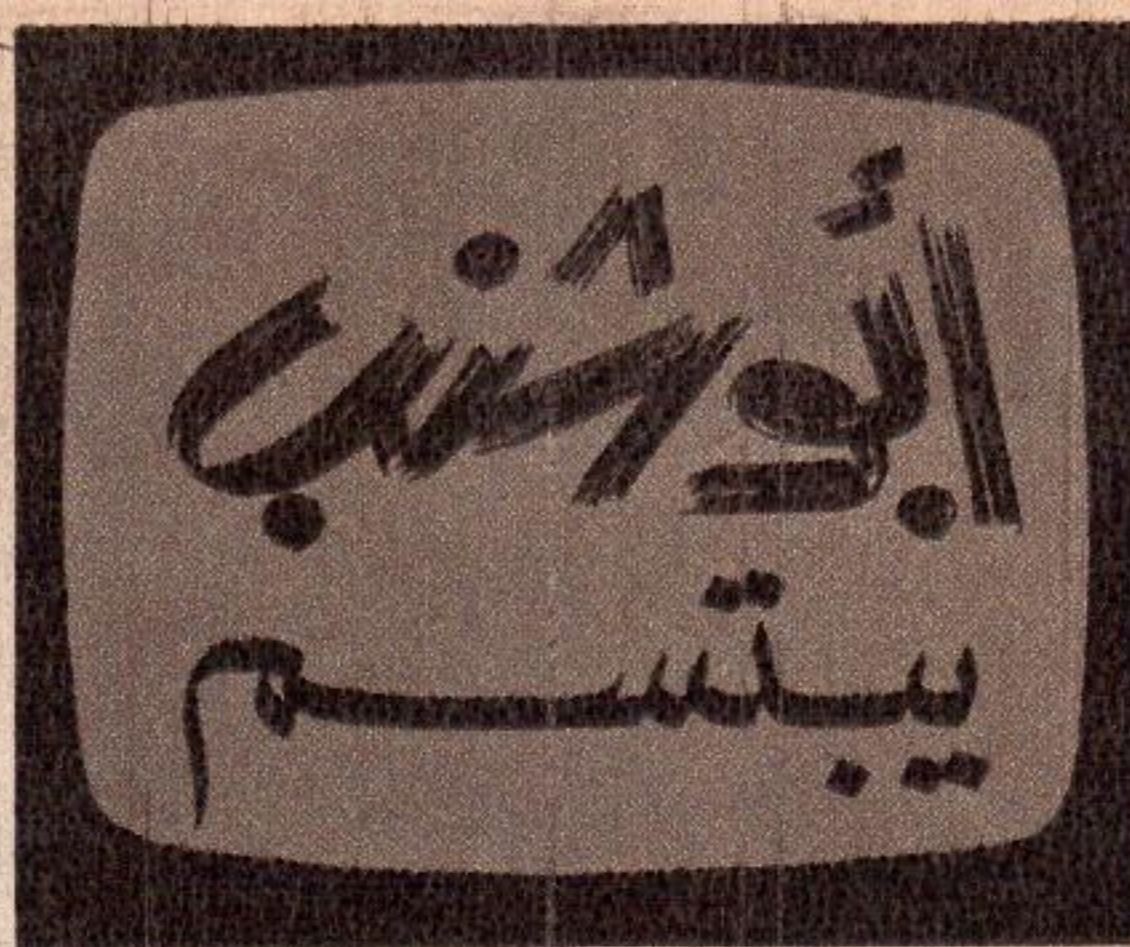 أبو شنب
يبتسم